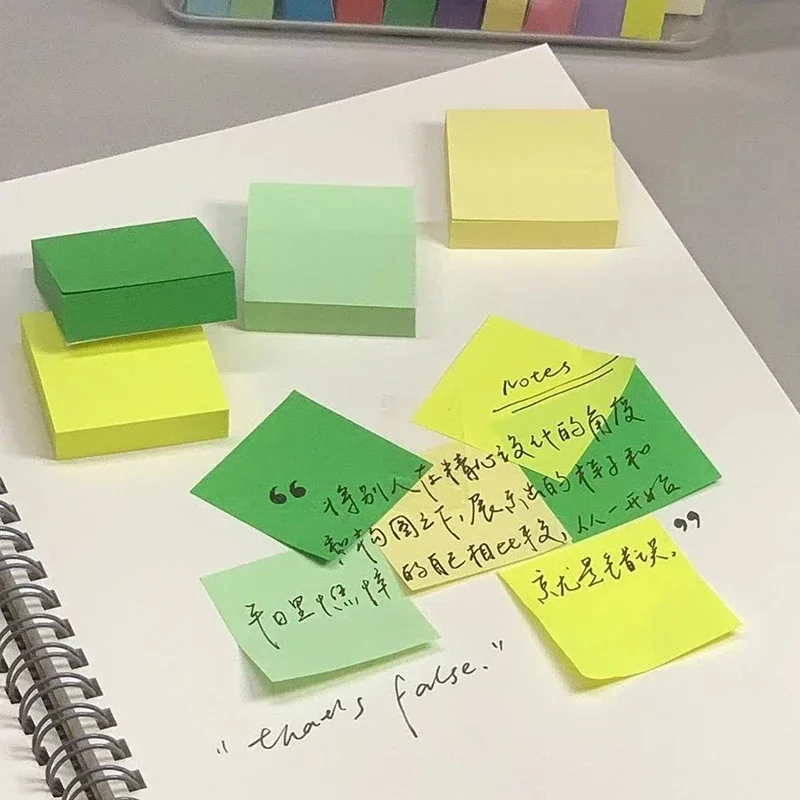 Notes
“将别人在精心设计的角度
和构图之下,展示出的样子和
平日里憔悴的自己相比较,从一开始
就是错误。”
"that's false."